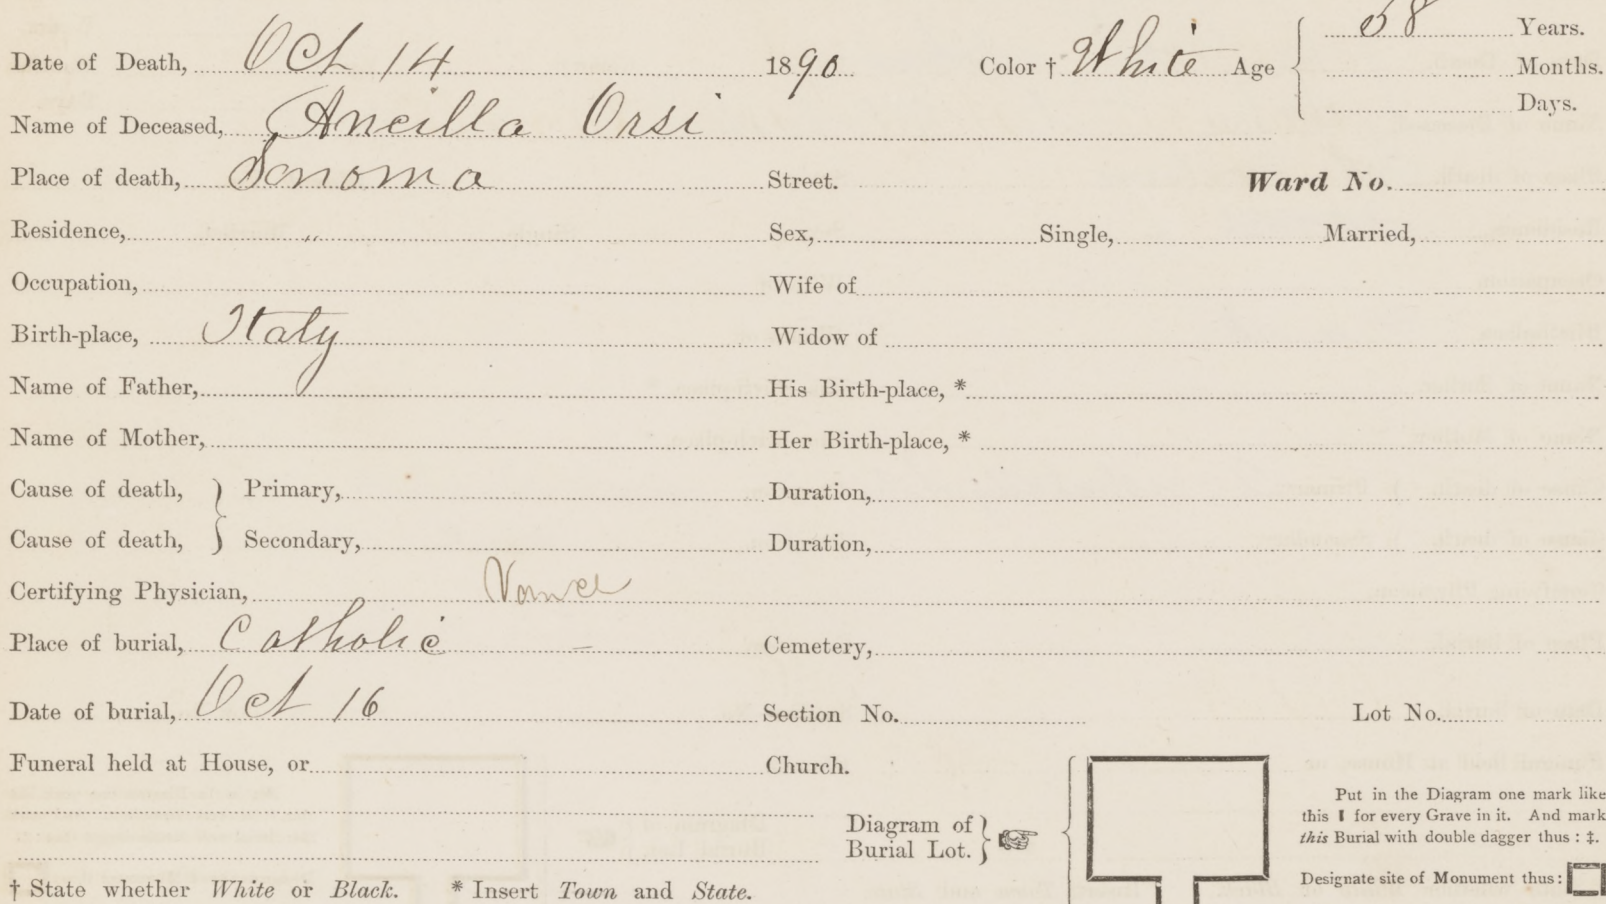 58 Years.
Date of Death, Oct 14 1890 Color † White Age Months.
Days.
Name of Deceased, Ancilla Orsi
Place of death, Sonoma Street. Ward No.
Residence, " Sex, Single, Married,
Occupation, Wife of
Birth-place, Italy Widow of
Name of Father, His Birth-place, *
Name of Mother, Her Birth-place, *
Cause of death, } Primary, Duration,
Cause of death, } Secondary, Duration,
Certifying Physician,
Place of burial, Catholic – Cemetery,
Date of burial, Oct 16 Section No. Lot No.
Funeral held at House, or Church.
Diagram of
Burial Lot. }
Put in the Diagram one mark like
this I for every Grave in it. And mark
this Burial with double dagger thus : ‡.
Designate site of Monument thus :
† State whether White or Black. * Insert Town and State.